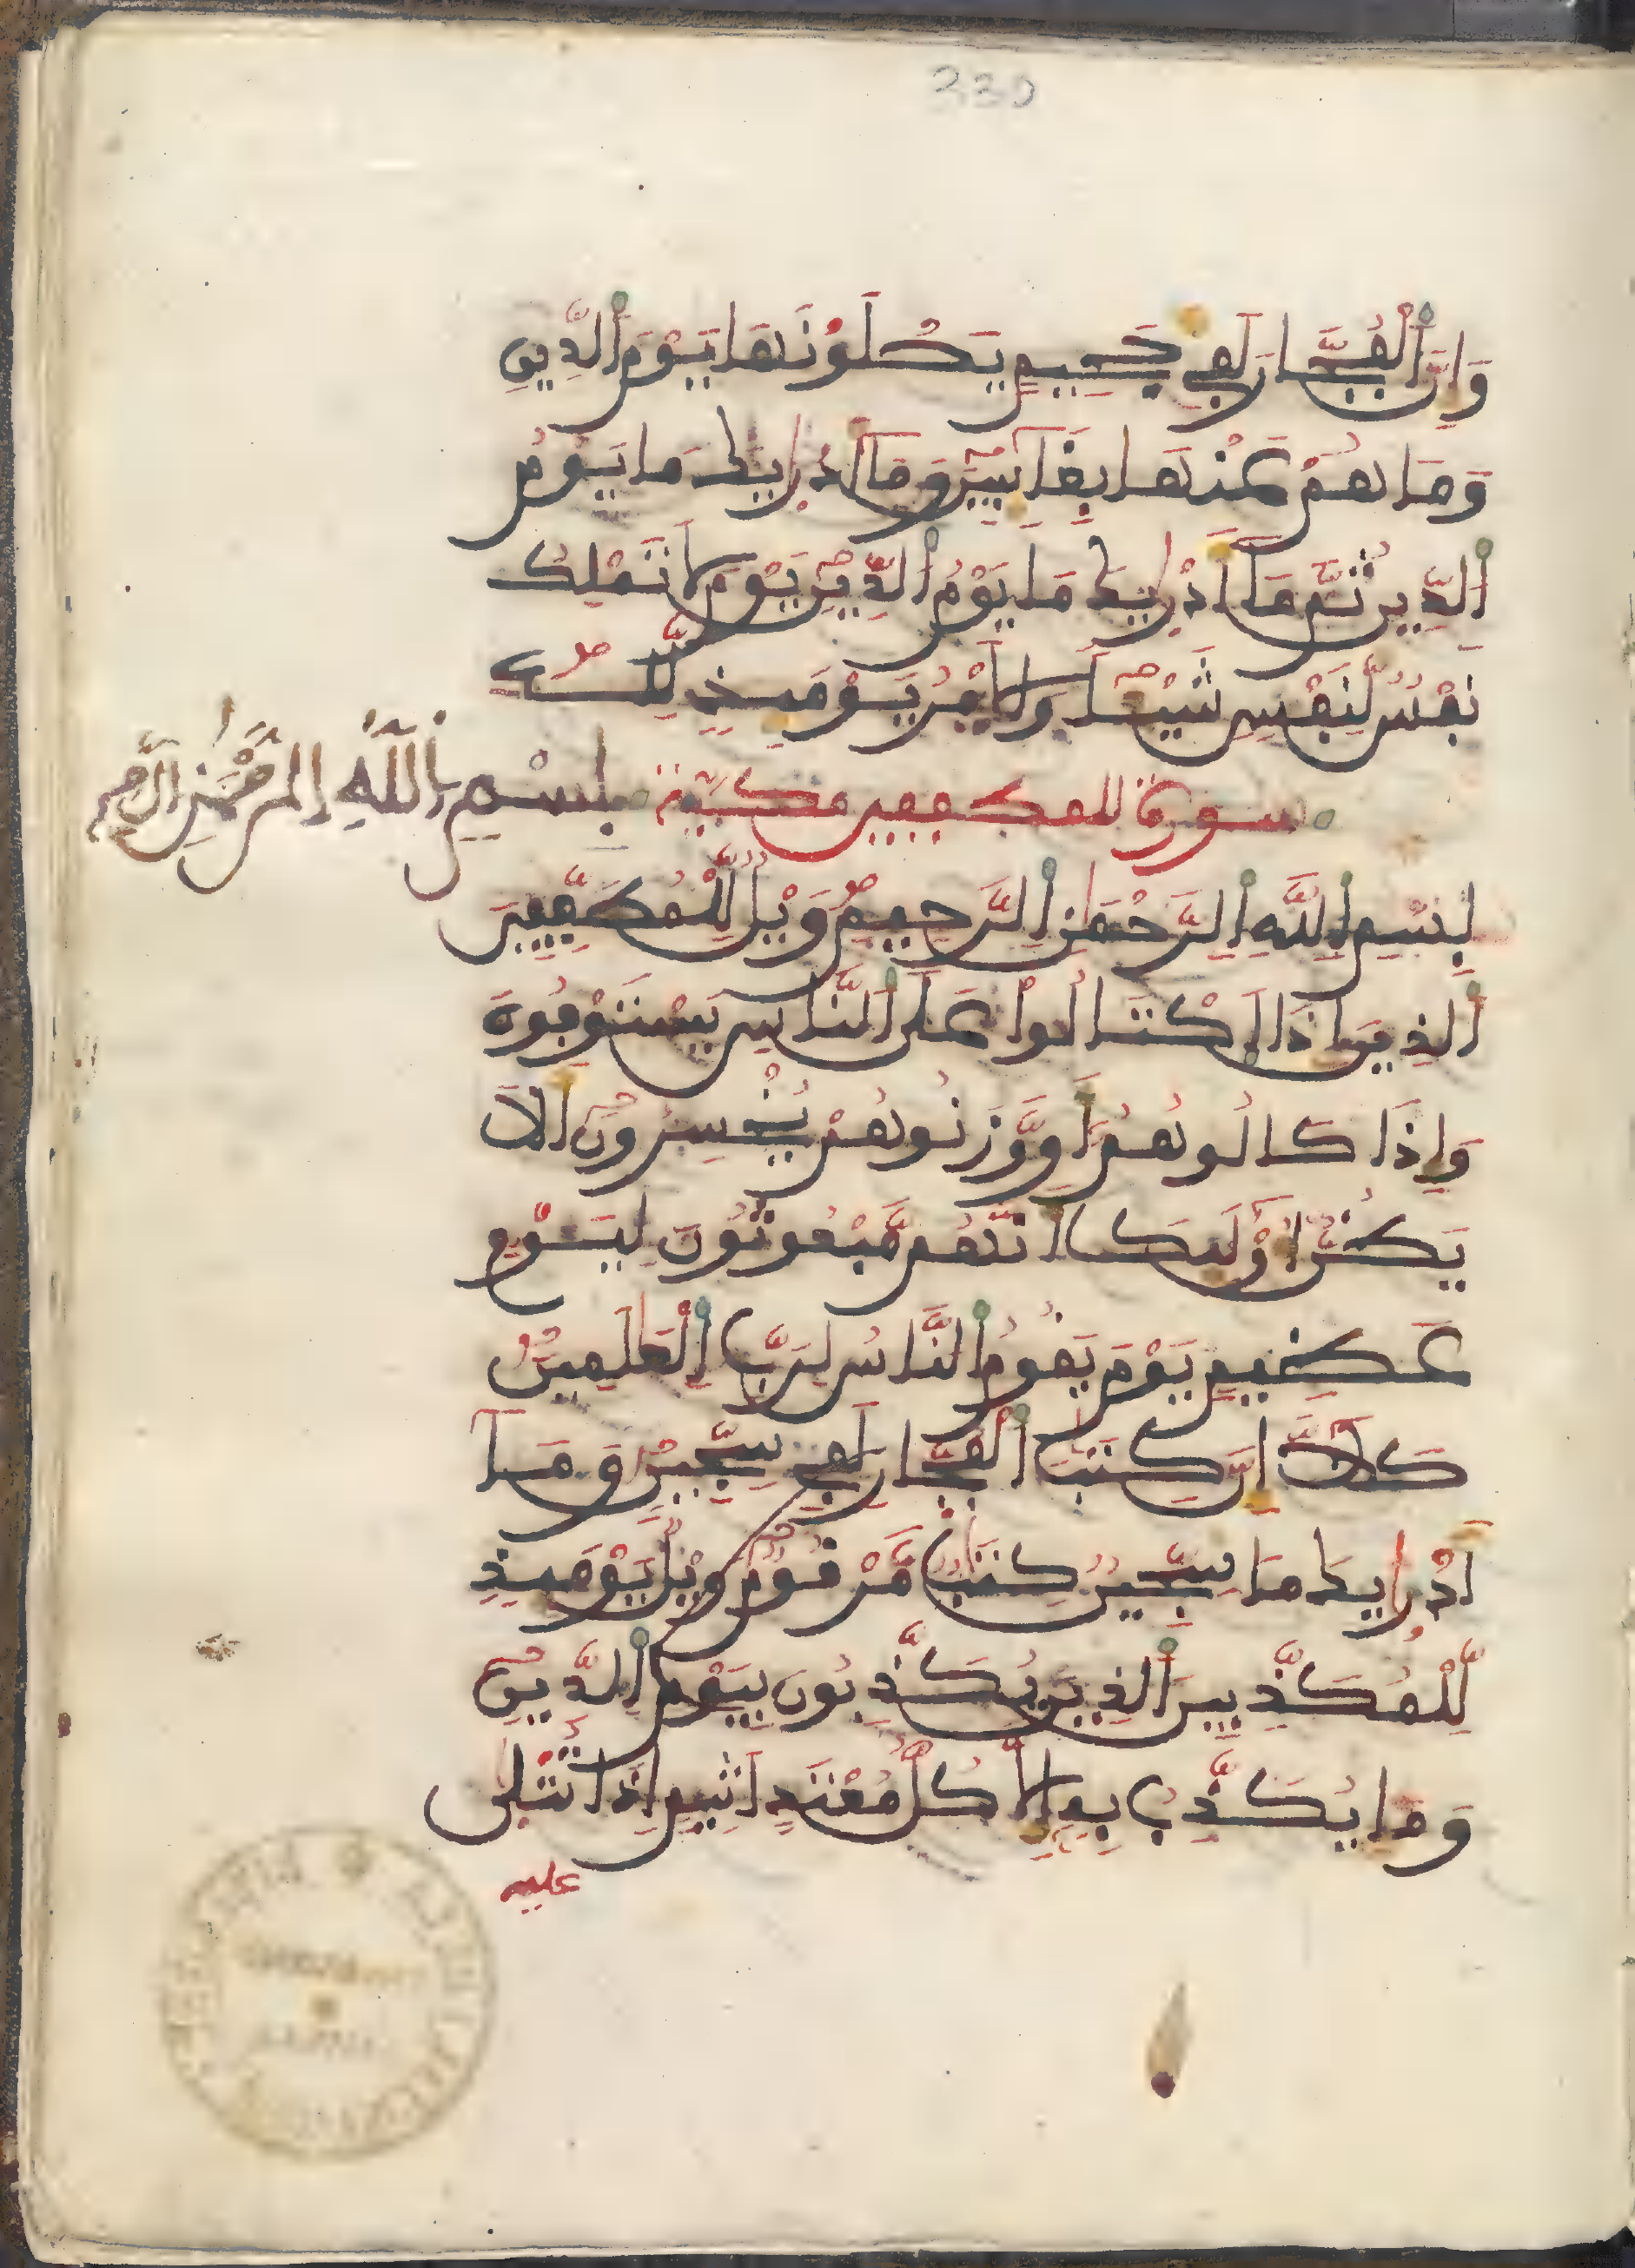 330
وَإِنَّ اَ۬لْفُجَّارَ لَفِي جَحِيمٖ يَصْلَوْنَهَا يَوْمَ اَ۬لدِّينِ
وَمَا هُمْ عَنْهَا بِغَآئِبِينَ وَمَآ أَدْر۪يٰكَ مَا يَوْمُ
اُ۬لدِّينِ ثُمَّ مَآ أَدْر۪يٰكَ مَا يَوْمُ اُ۬لدِّينِ يَوْمَ لَا تَمْلِكُ
نَفْسٞ لِّنَفْسٖ شَيْـٔاٗ وَالَامْرُ يَوْمَئِذٖ لِّلهِ
سورة المطففين مكية بِسْمِ اِ۬للَّهِ اِ۬لرَّحْمَٰنِ اِ۬لرَّحِيمِ
بِسْمِ اِ۬للَّهِ اِ۬لرَّحْمَٰنِ اِ۬لرَّحِيمِ وَيْلٞ لِّلْمُطَفِّفِينَ
اَ۬لذِينَ إِذَا اَ۪كْتَالُواْ عَلَي اَ۬لنَّاسِ يَسْتَوْفُونَ
وَإِذَا كَالُوهُمُۥٓ أَو وَّزَنُوهُمْ يُخْسِرُونَ أَلَا
يَظُنُّ أُوْلَٰٓئِكَ أَنَّهُم مَّبْعُوثُونَ لِيَوْمٍ
عَظِيمٖ يَوْمَ يَقُومُ اُ۬لنَّاسُ لِرَبِّ اِ۬لْعَٰلَمِينَ
كَلَّآ إِنَّ كِتَٰبَ اَ۬لْفُجَّارِ لَفِي سِجِّينٖ وَمَآ
أَدْر۪يٰكَ مَا سِجِّينٞ كِتَٰبٞ مَّرْقُومٞ وَيْلٞ يَوْمَئِذٖ
لِّلْمُكَذِّبِينَ اَ۬لذِينَ يُكَذِّبُونَ بِيَوْمِ اِ۬لدِّينِ
وَمَا يُكَذِّبُ بِهِۦٓ إِلَّا كُلُّ مُعْتَدٍ اَثِيمٍ اِذَا تُتْل۪يٰ
عليه